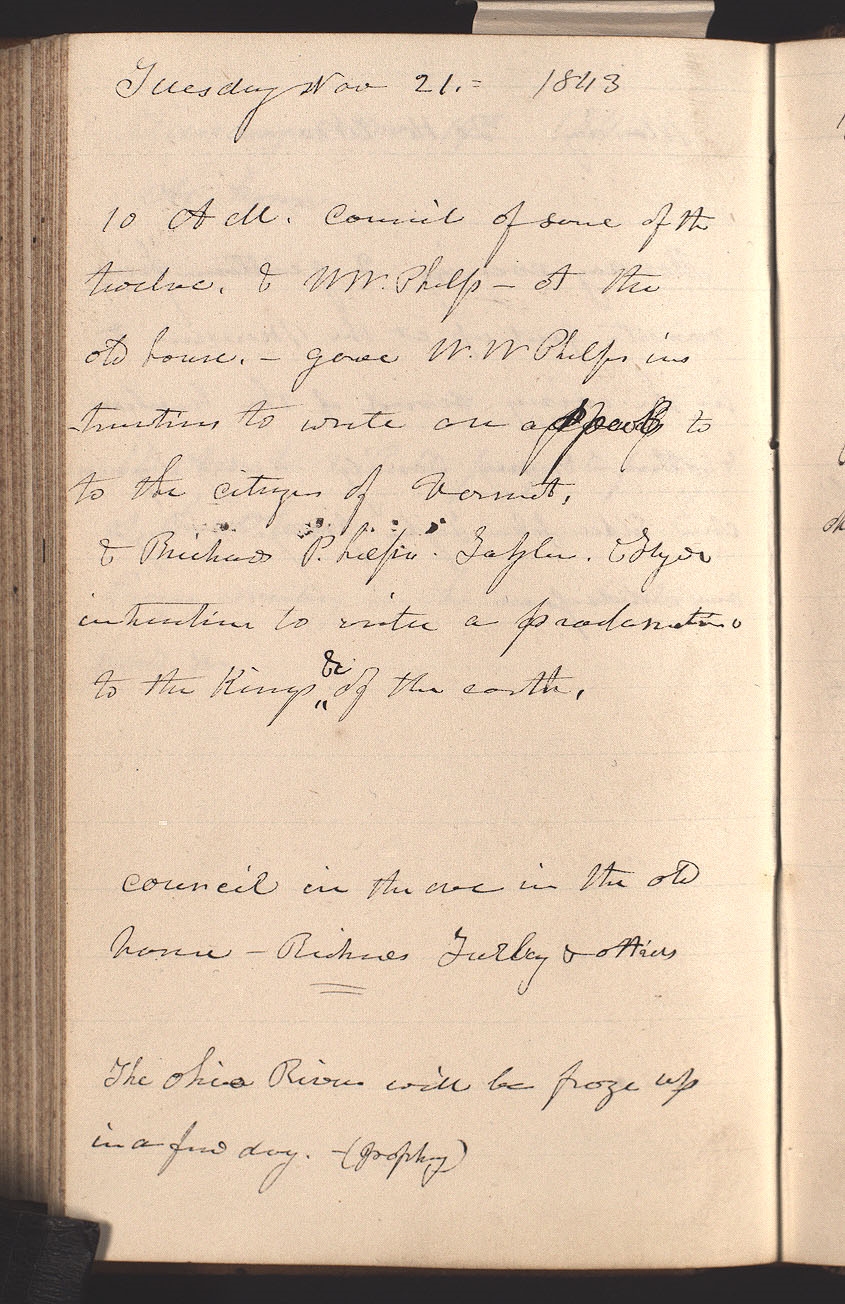 Tuesday Nov 21.= 1843
10 A M. Council of some of th
twelve. & W W. Phelps — At the
old house. — gave W. W Phelps ins
-tructions to write an appeal to
to the citizens of Vermont,
& Richards Phelps. Taylor. & Hyde
intructions to write a proclamation
to the Kings &c of the earth.
council in the eve in the old
house — Richards Turley & others
The ohio River will be froze up
in a few day. — (prophcy)